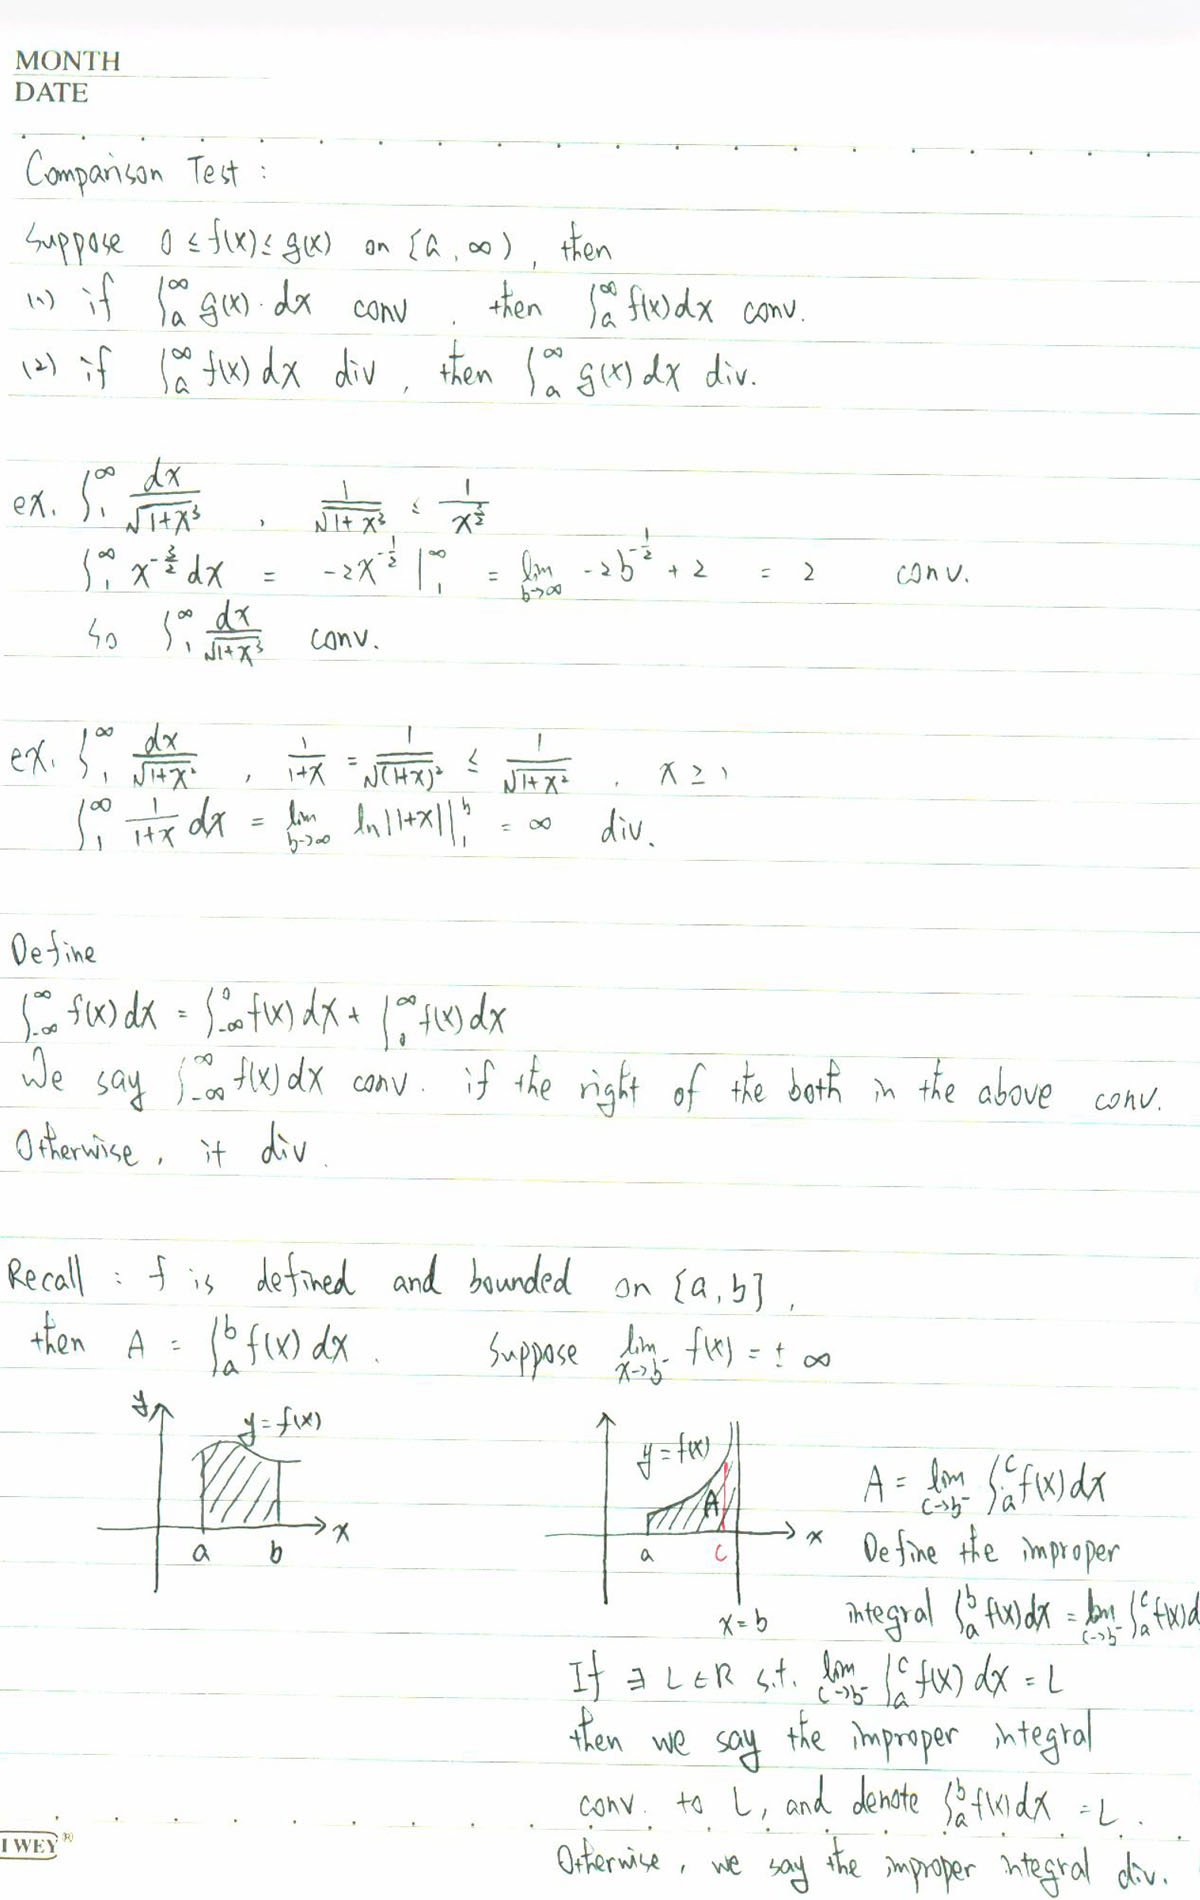 MONTH
DATE
Comparison Test :
Suppose 0 ≤ f(x) ≤ g(x) on [a, ∞), then
(1) if ∫_a^∞ g(x)·dx conv, then ∫_a^∞ f(x)dx conv.
(2) if ∫_a^∞ f(x)dx div, then ∫_a^∞ g(x)dx div.
ex. ∫_1^∞ dx/√(1+x³), 1/√(1+x³) ≤ 1/x^(3/2)
∫_1^∞ x^(-3/2) dx = -2x^(-1/2) |_1^∞ = lim_{b→∞} -2b^(-1/2) + 2 = 2 conv.
So ∫_1^∞ dx/√(1+x³) conv.
ex. ∫_1^∞ dx/√(1+x²), 1/(1+x) = 1/√((1+x)²) ≤ 1/√(1+x²), x ≥ 1
∫_1^∞ 1/(1+x) dx = lim_{b→∞} ln|1+x| |_1^b = ∞ div.
Define
∫_{-∞}^∞ f(x)dx = ∫_{-∞}^0 f(x)dx + ∫_0^∞ f(x)dx
We say ∫_{-∞}^∞ f(x)dx conv. if the right of the both in the above conv.
Otherwise, it div.
Recall : f is defined and bounded on [a, b],
then A = ∫_a^b f(x)dx. Suppose lim_{x→b⁻} f(x) = ± ∞
y
y = f(x)
x
a b
y = f(x)
A
x
a c
x = b
A = lim_{c→b⁻} ∫_a^c f(x)dx
Define the improper
integral ∫_a^b f(x)dx = lim_{c→b⁻} ∫_a^c f(x)d
If ∃ L ∈ R s.t. lim_{c→b⁻} ∫_a^c f(x)dx = L
then we say the improper integral
conv. to L, and denote ∫_a^b f(x)dx = L.
Otherwise, we say the improper integral div.
I WEY®